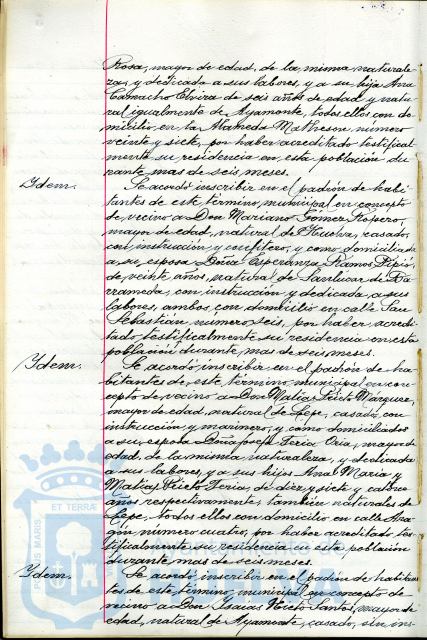 Rosa, mayor de edad, de la misma naturale
za, y dedicada a sus labores, y a su hija Ana
Camacho Elvira de seis años de edad y natu
ral igualmente de Ayamonte, todos ellos con do
micilio en la Alameda Matheson, número
veinte y siete, por haber acreditado testifical
mente su residencia en esta población du
rante mas de seis meses.
Ydem.
Se acordó inscribir en el padrón de habi
tantes de este término municipal en concepto
de vecino a Don Mariano Gómez Ropero,
mayor de edad, natural de Huelva, casado,
con instrucción y confitero, y como domiciliada
a su esposa Doña Esperanza Ramos
de veinte años, natural de Sanlúcar de Ba
rrameda, con instrucción y dedicada a sus
labores, ambos con domicilio en calle San
Sebastián número seis, por haber acredi
tado testificalmente su residencia en esta
población durante mas de seis meses.
Ydem.
Se acordó inscribir en el padrón de ha
bitantes de este término municipal en con
cepto de vecino a Don Matias Prieto Márquez,
mayor de edad, natural de Lepe, casado, con
instrucción y marinero, y como domiciliados
a su esposa Doña Josefa Feria Oria, mayor de
edad, de la misma naturaleza, y dedicada
a sus labores, y a sus hijos Ana Maria y
Matias Prieto Feria, de diez y siete y catorce
años respectivamente, también naturales de
Lepe, todos ellos con domicilio en calle Ara
gón, número cuatro, por haber acreditado tes
tificalmente su residencia en esta población
durante mas de seis meses.
Ydem.
Se acordó inscribir en el padrón de habitan
tes de este término municipal en concepto de
vecino a Don Isaias Nieto Santos, mayor de
edad, natural de Ayamonte, casado, sin ins
PORTUS MARIS ET TERRAE